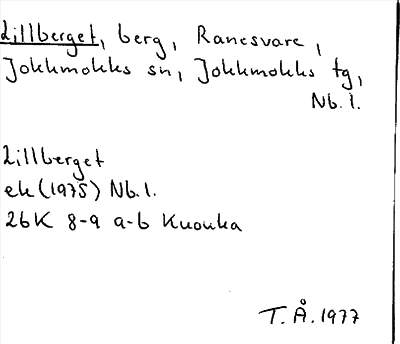 Lillberget, berg, Ranesvare,
Jokkmokks sn, Jokkmokks tg,
Nb.l.
Lillberget
ek (1975) Nb.l.
26K 8-9 a-b Kuouka
T.Å.1977